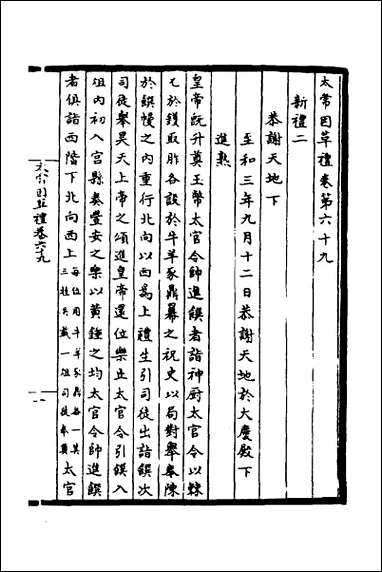 太常因革禮卷第六十九
新禮二
恭謝天地下
至和三年九月十二日恭謝天地於大慶殿下
進熟
皇帝既升奠玉幣太官令帥進饌者詣神厨太官令以
匕於鑊取胙各設於羊羊豕鼎冪之祝史以局對舉奉陳
於饌幔之内重行北向以西為上禮生引司徒出詣饌次
司徒舉昊天上帝之頌進皇帝還位樂止太官令引饌入
俎内初入宫縣奏豐安之樂以黄鍾之均太官令帥進饌
者俱詣西階下北向西上每位用羊羊豕鼎各一其三牲共載一俎司徒奉奠太官
太常因革禮卷六十九
一